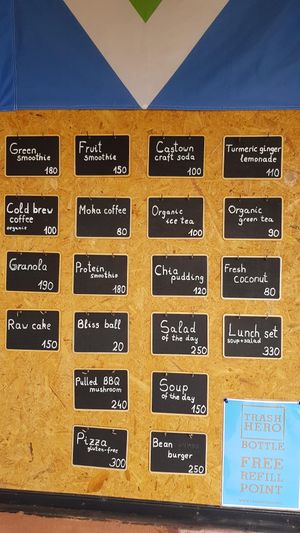 Green
smoothie
180
Fruit
smoothie
150
Castown
craft soda
100
Turmeric ginger
lemonade
110
Cold brew
coffee
organic 100
Moka coffee
80
Organic
ice tea
100
Organic
green tea
90
Granola
190
Protein
smoothie
180
Chia
pudding
120
Fresh
coconut
80
Raw cake
150
Bliss ball
20
Salad
of the day
250
Lunch set
soup+salad
330
Pulled BBQ
mushroom
240
Soup
of the day
150
Pizza
gluten-free
300
Bean
burger
250
TRASH
HERO
BOTTLE
FREE
REFILL
POINT